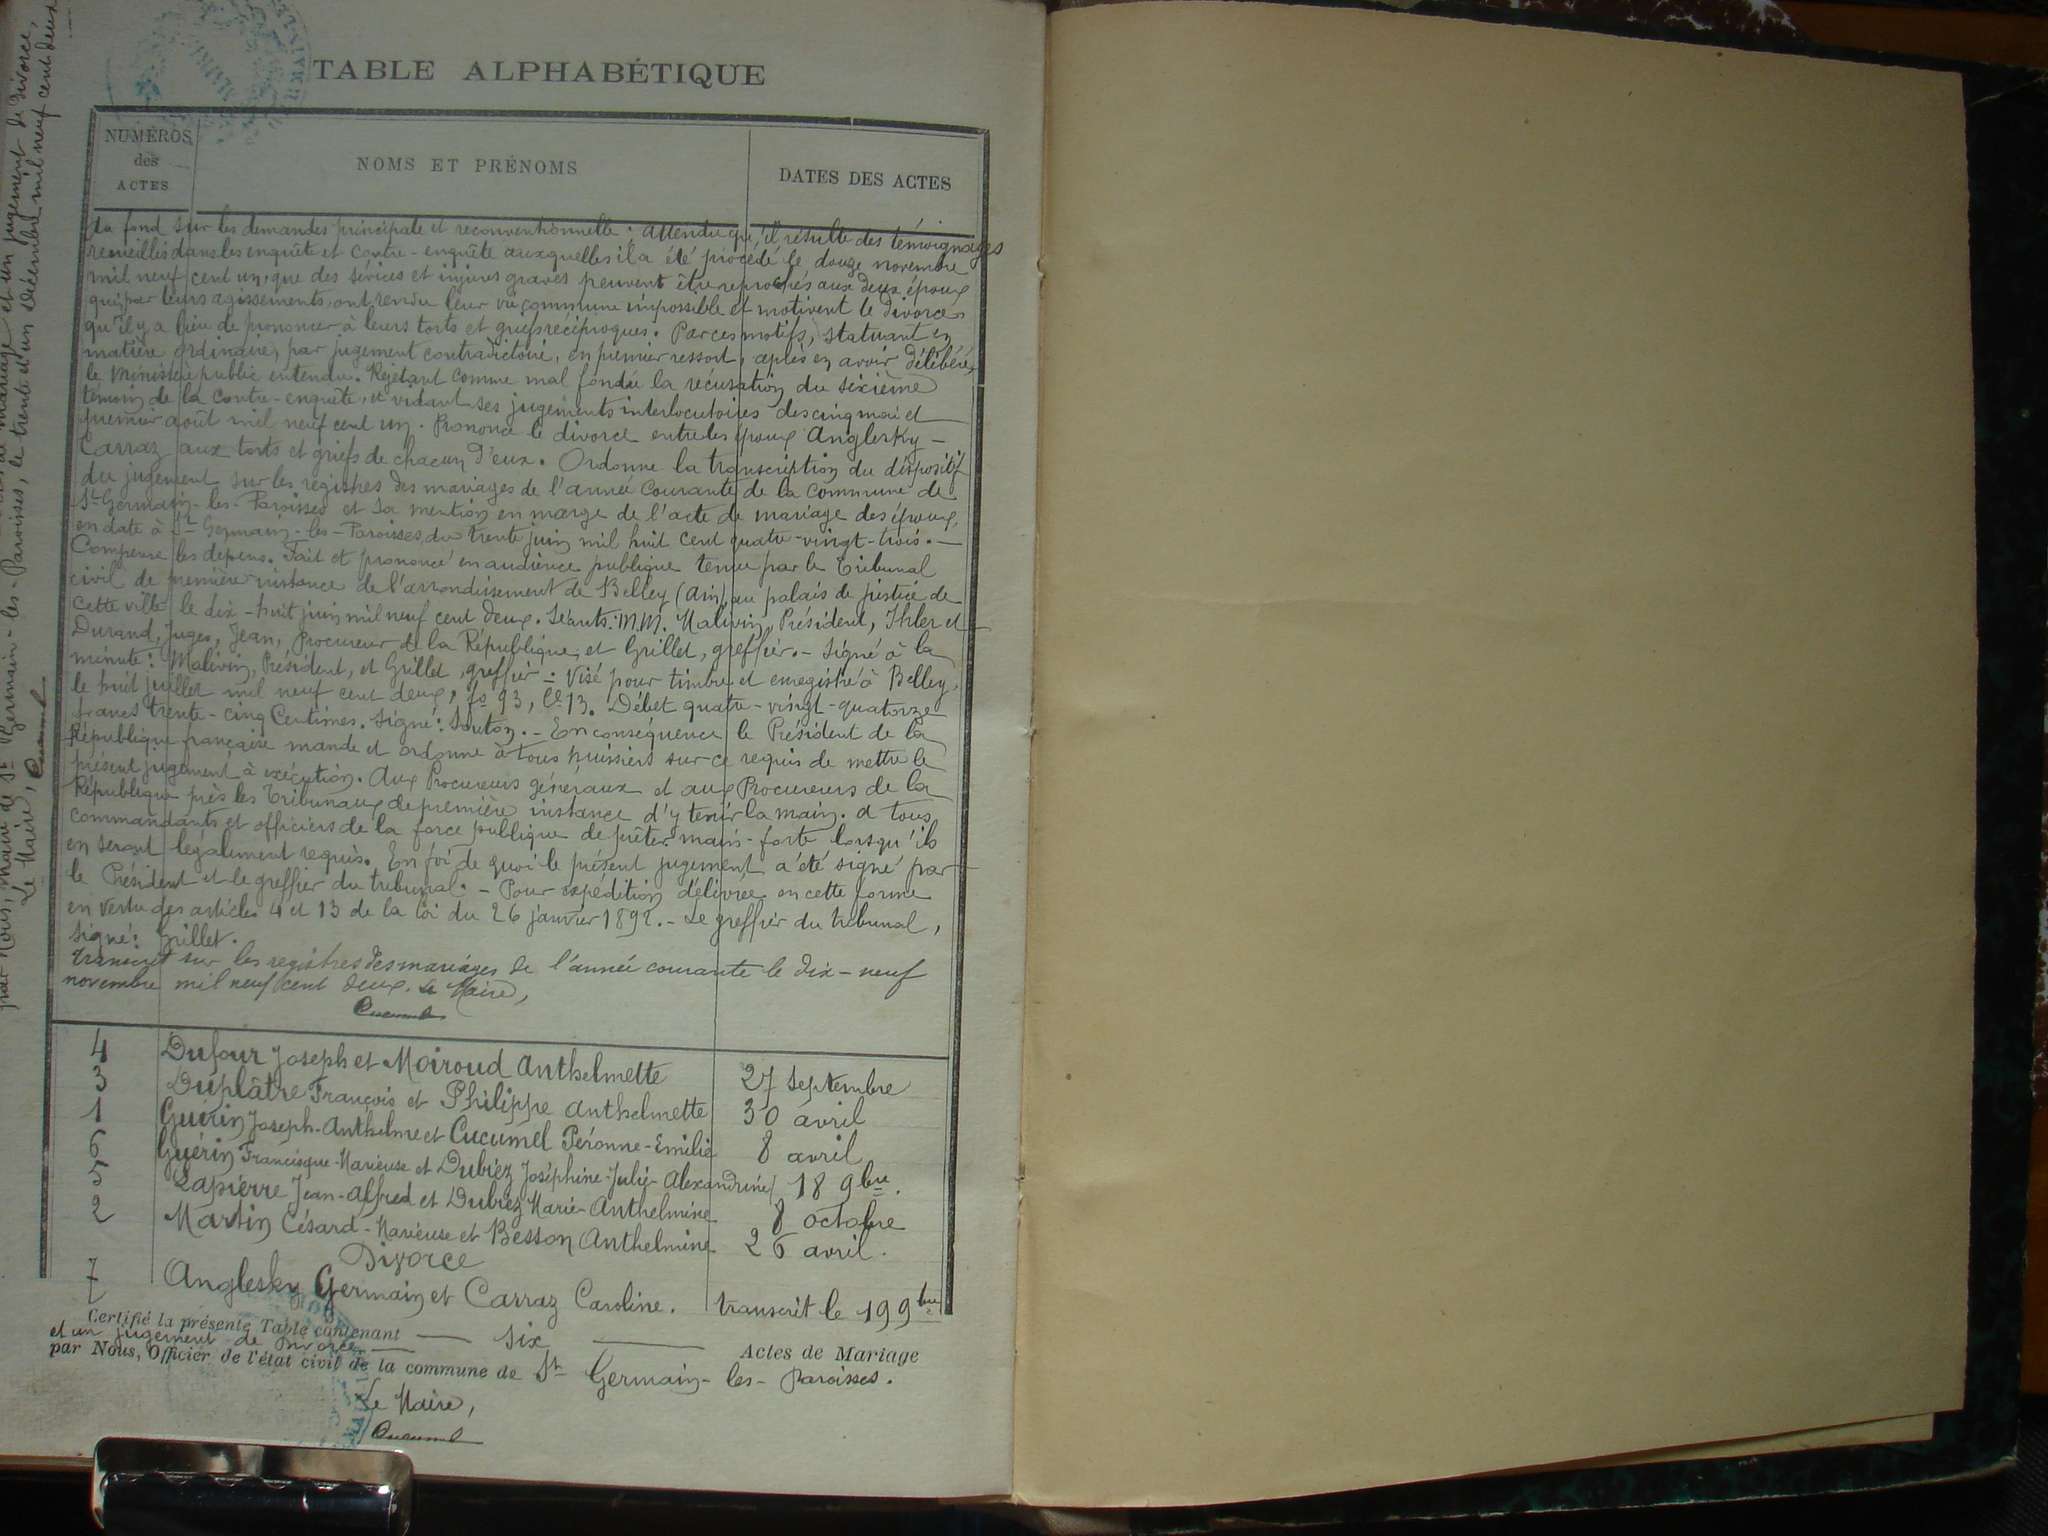 TABLE ALPHABÉTIQUE
NUMÉROS
des
ACTES
NOMS ET PRÉNOMS
DATES DES ACTES
Au fond sur les demandes principale et reconventionnelle : attendu qu'il résulte des témoignages
recueillis dans les enquête et contre-enquête auxquelles il a été procédé le douze novembre
mil neuf cent un, que des sévices et injures graves peuvent être reprochés aux deux époux
qui par leurs agissements, ont rendu leur vie commune impossible et motivent le divorce
qu'il y a lieu de prononcer à leurs torts et griefs réciproques. Par ces motifs, statuant en
matière ordinaire, par jugement contradictoire, en premier ressort, après en avoir délibéré,
le Ministère public entendu. Rejetant comme mal fondée la récusation du sixième
témoin de la contre-enquête, et vidant ses jugements interlocutoires des cinq mai et
premier août mil neuf cent un. Prononce le divorce entre les époux Anglesky -
Carraz aux torts et griefs de chacun d'eux. Ordonne la transcription du dispositif
du jugement sur les registres des mariages de l'année courante de la commune de
St Germain-les-Paroisses et sa mention en marge de l'acte de mariage des époux,
en date à St Germain-les-Paroisses, du trente juin mil huit cent quatre-vingt-trois. —
Compense les dépens. Fait et prononcé en audience publique tenue par le Tribunal
civil de première instance de l'arrondissement de Belley (Ain) au palais de justice de
cette ville le dix-huit juin mil neuf cent deux. Séants : M.M. Malivin, Président, Ihler et
Durand, Juges, Jean, Procureur de la République, et Grillet, greffier. - Signé à la
minute : Malivin, Président, et Grillet, greffier - Visé pour timbre et enregistré à Belley,
le huit juillet mil neuf cent deux, fo 93, Ce 13. Débet quatre-vingt-quatorze
francs trente-cinq Centimes. Signé : Souton. - En conséquence le Président de la
République française mande et ordonne à tous huissiers sur ce requis de mettre le
présent jugement à exécution. Aux Procureurs généraux et aux Procureurs de la
République près les Tribunaux de première instance d'y tenir la main. A tous
commandants et officiers de la force publique de prêter main-forte lorsqu'ils
en seront légalement requis. En foi de quoi le présent jugement a été signé par
le Président et le greffier du tribunal. - Pour expédition délivrée en cette forme
en vertu des articles 4 et 13 de la loi du 26 janvier 1892. - Le greffier du tribunal,
signé : Grillet.
Transcrit sur les registres des mariages de l'année courante le dix-neuf
novembre mil neuf cent deux. Le Maire,
Cucumel
4 Dufour Joseph et Moiroud Anthelmette 27 septembre
3 Duplâtre François et Philippe Anthelmette 30 avril
1 Guérin Joseph-Anthelme et Cucumel Péronne-Emilie 8 avril
6 Guérin Francisque-Marieuse et Dubiez Joséphine-Julie-Alexandrine 18 9bre.
5 Lapierre Jean-Alfred et Dubiez Marie-Anthelmine 8 octobre
2 Martin Césard-Marieuse et Besson Anthelmine 26 avril.
Divorce
7 Anglesky Germain et Carraz Caroline. transcrit le 19 9bre
Certifié la présente Table contenant — six — Actes de Mariage
et un jugement de divorce
par Nous, Officier de l'état civil de la commune de St Germain-les-Paroisses.
Le Maire,
Cucumel
et un jugement de divorce,
par Nous, maire de St Germain-les-Paroisses, le trente et un décembre mil neuf cent deux
Le Maire, Cucumel